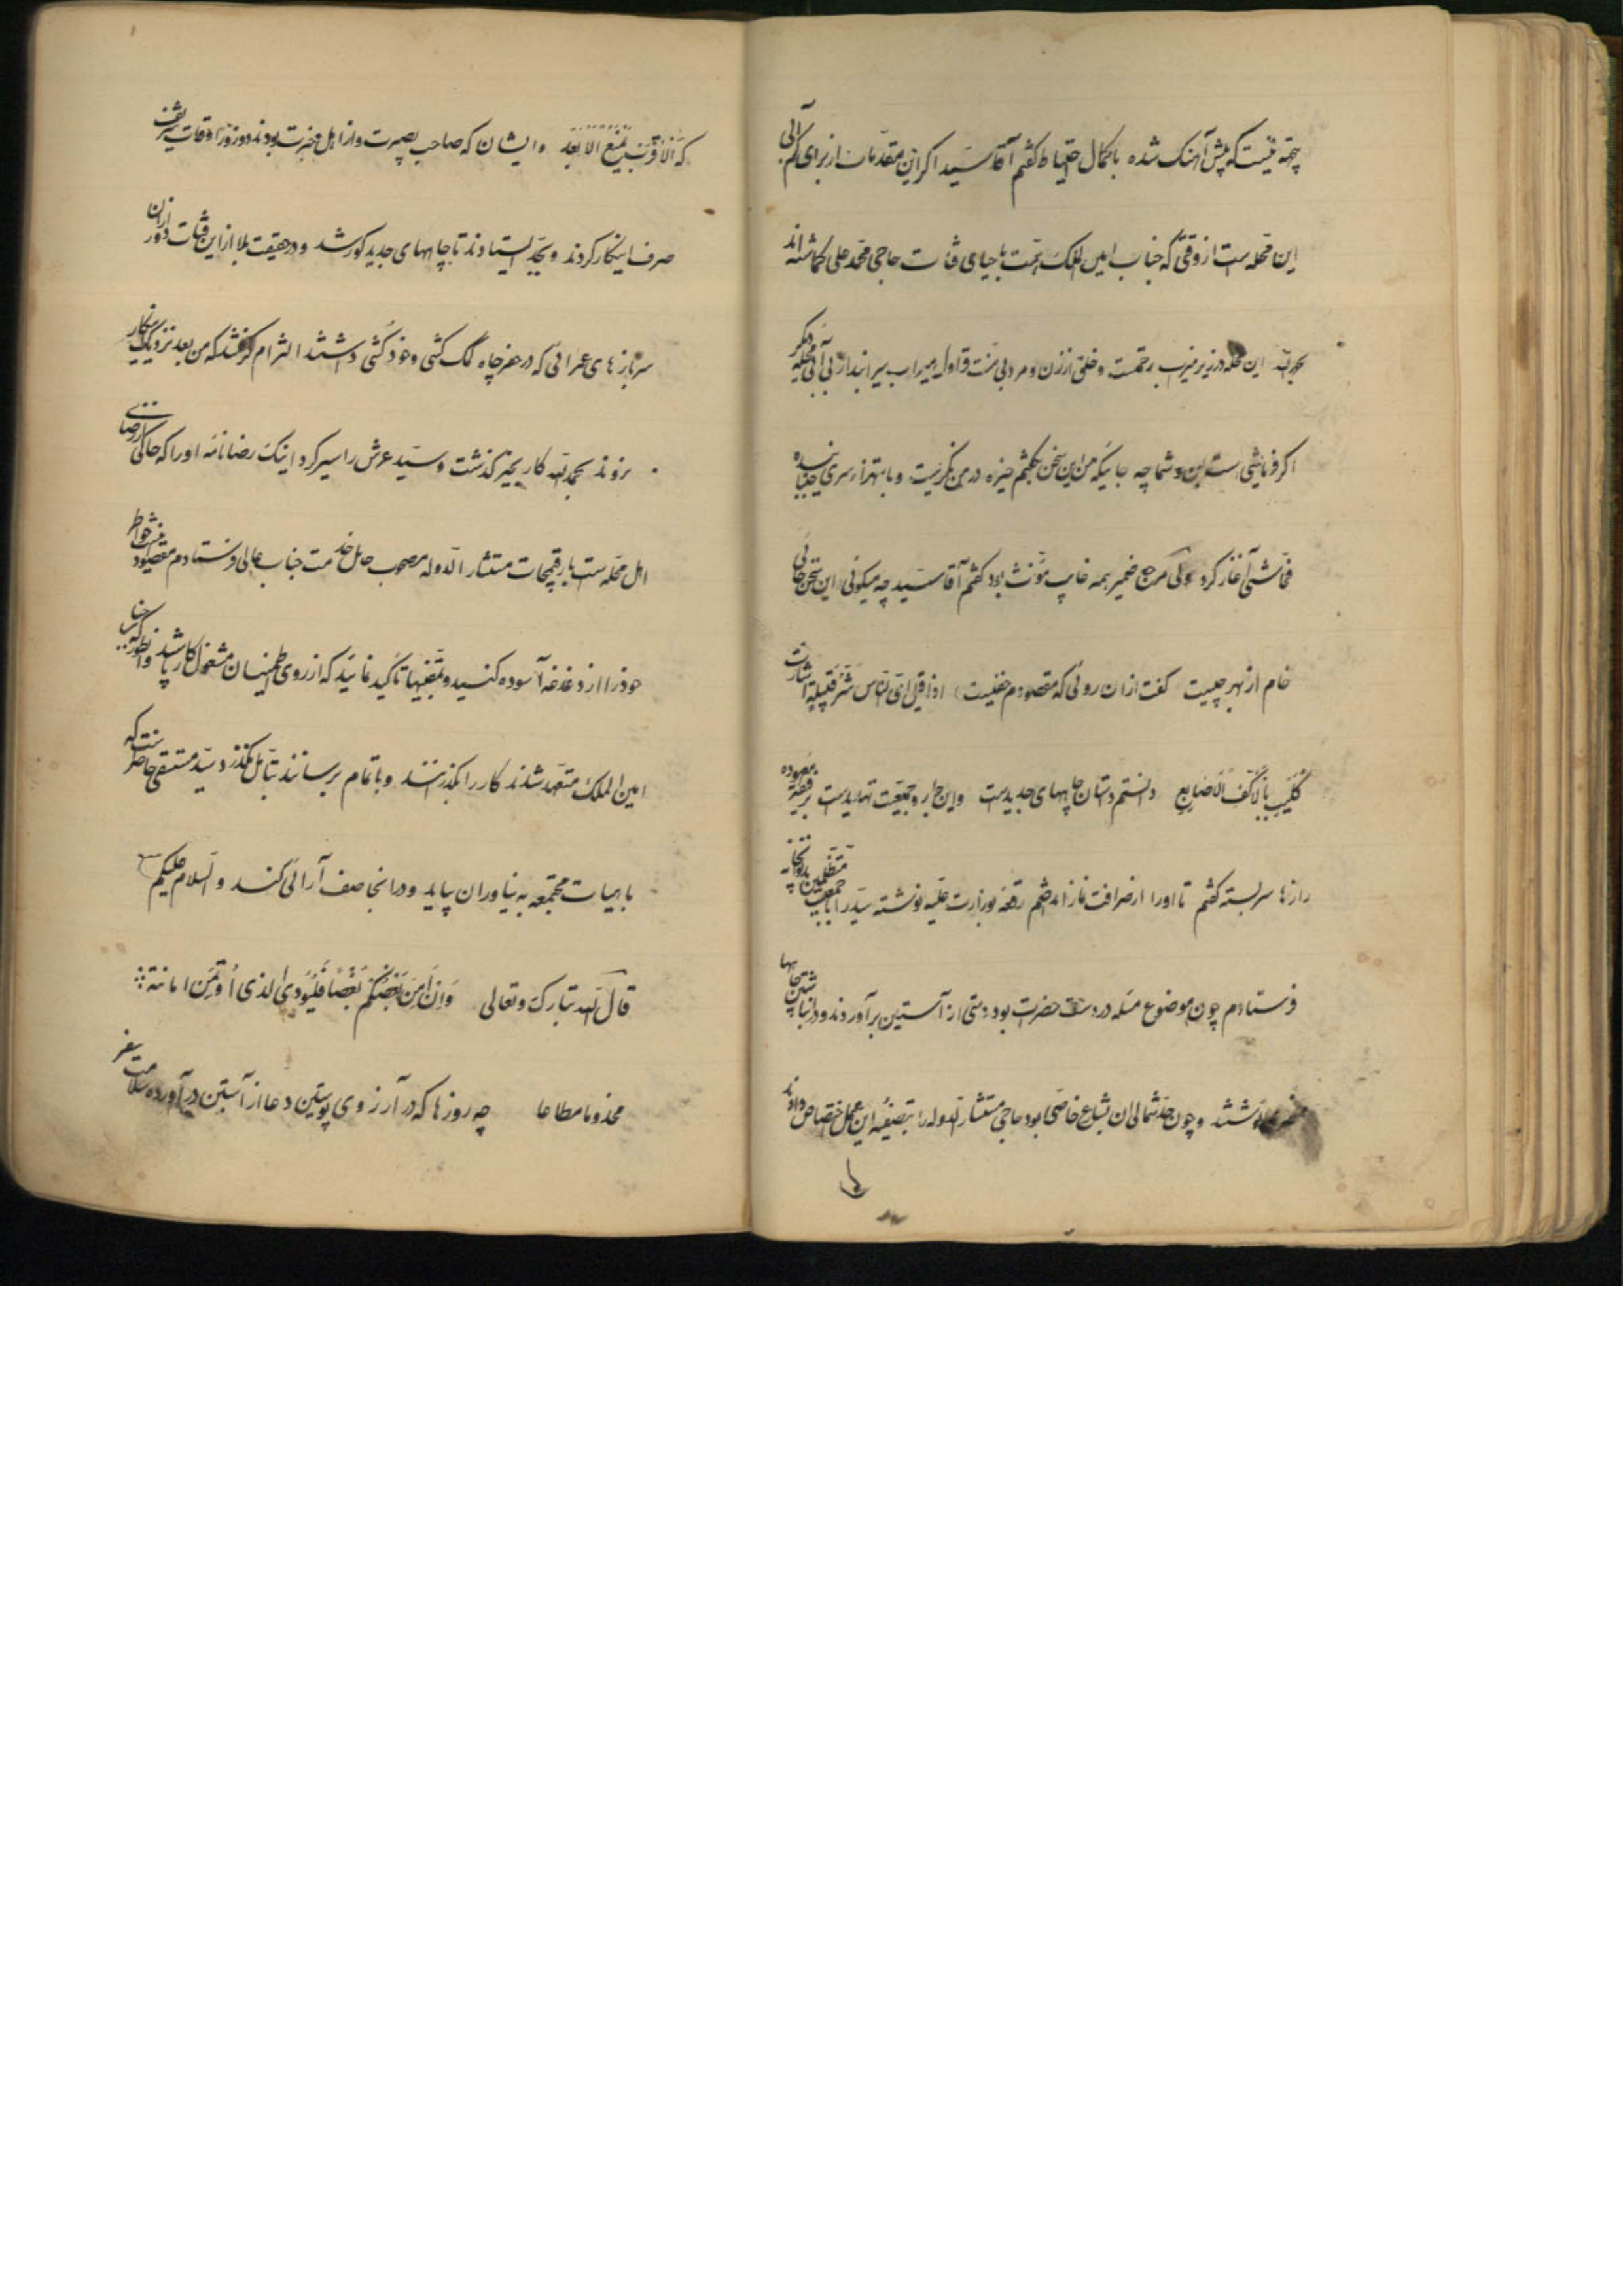 چه نیست که پیش آهنگ شده با کمال احتیاط گفتم آقا سید اگر این مقدمات از برای کم آبی
این محله است از وقتی که جناب امین الملک همت باحیای قنات حاجی محمد علی گماشته اند
بحمدالله این محله در زیر میزاب رحمت و خلق از زن و مرد بی منت قراول میراب سیرابند از بی آبی محله دیگر
اگر فرمایشی است من و شما چه جائیکه من این سخن بگفتم خیره در من نگریست و باهتزاز سری جنبانیده
فحاشی آغاز کرد ولی مرجع ضمیر همه غایب مؤنث بود گفتم آقا سید چه میگوئی این سخن جائی
خام از بهر چیست گفت ازان روئی که مقصودم خفیست اذا قیل ای الناس شر قبیلة اشارت
کلیب بالاکف الاصابع دانستم دستان چاههای جدیدست و این جار و جمعیت تهدیدست بر قصه معهوده
رازها سربسته گفتم تا اورا از ضرافت باز انداختم رقعه بوزارت علیه نوشته سید را با جمعیت متظلمین بدیوانخانه
فرستادم چون موضوع مسئله در دست حضرت بود دستی از آستین برآوردند و در انباشتن چاهها
نوشتند و چون حد شمالی ان مشاع خاصی بود حاجی مستشار الدوله را بتصفیه این عمل اختصاص دادند
که الاقرب یمنع الابعد و ایشان که صاحب بصیرت و از اهل خبرت بودند دو روز اوقات شریف
صرف اینکار کردند و بجد ایستادند تا چاههای جدید کور شد و در حقیقت بلا از این قنات دور از ان
سربازهای عراقی که در حفر چاه لگ کشی و خود کشی داشتند التزام گرفتند که من بعد نزدیک اینکار
نروند بحمدالله کار بخیر گذشت و سید عرش را سیر کرد اینک رضا نامه او را که حاکی از رضای
اهل محله ست با رقیمجات مستشار الدوله مصحوب حامل خدمت جناب عالی فرستادم مقصود
خود را از دغدغه آسوده کنید و بمقنیها تأکید نمائید که از روی اطمینان مشغول کار باشند و انطور که جناب
امین الملک متعهد شدند کار را بگذرانند و باتمام برسانند بتأمل نگذرد سید مستقی حاضرست که
با هیات مجتمعه به نیاوران بیاید و در انجا صف آرائی کند و السلام علیکم
قال الله تبارک و تعالی وان امن بعضکم بعضا فلیؤد الذی اؤتمن امانته
مخدوما مطاعا چه روزها که در آرزوی پوستین دعا از آستین در آورده سلامت سفر